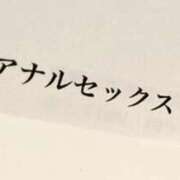 アナルセックス